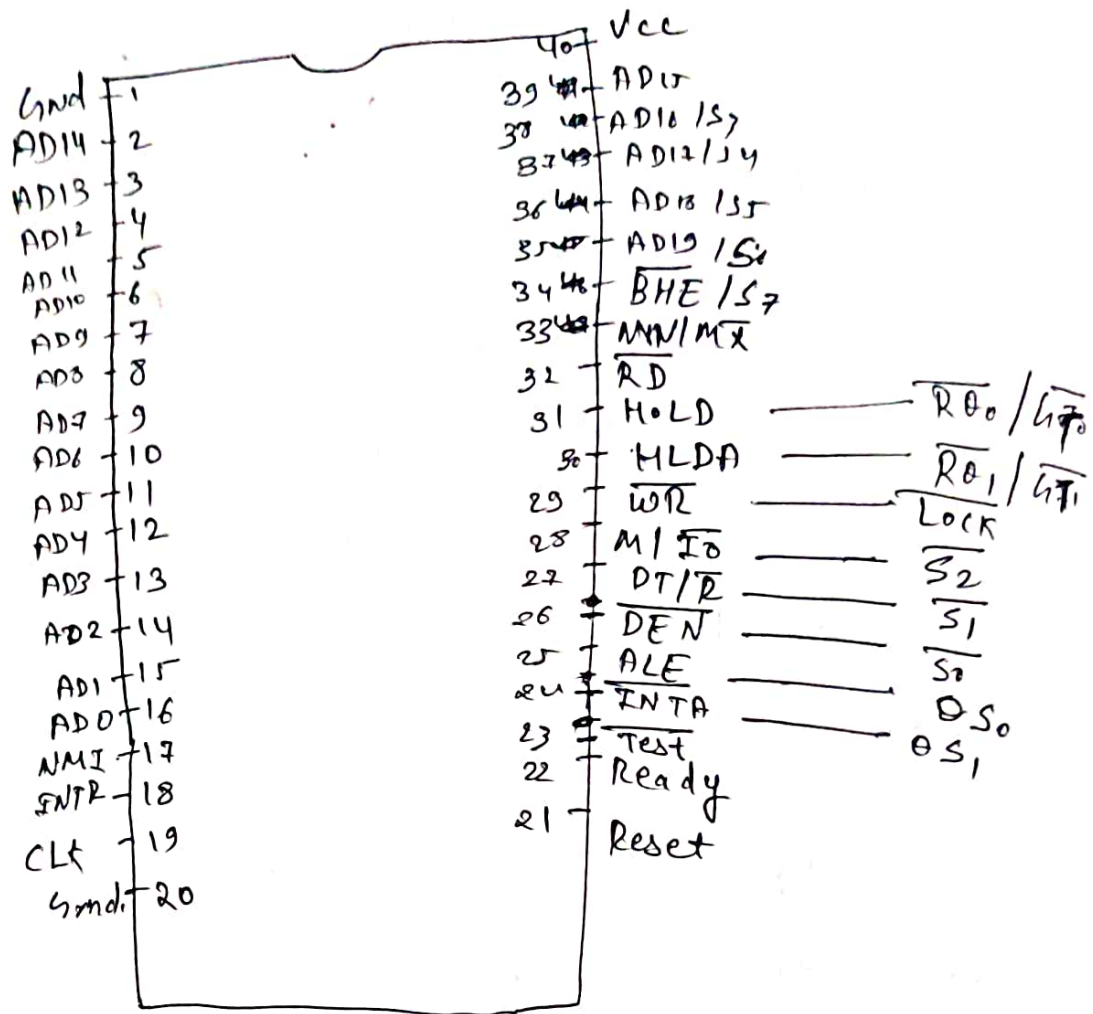 Gnd 1
AD14 2
AD13 3
AD12 4
AD11 5
AD10 6
AD9 7
AD8 8
AD7 9
AD6 10
AD5 11
AD4 12
AD3 13
AD2 14
AD1 15
AD0 16
NMI 17
INTR 18
CLK 19
Gnd. 20
40 Vcc
39 AD15
38 AD16 / S3
37 AD17 / S4
36 AD18 / S5
35 AD19 / S6
34 B̅H̅E̅ / S7
33 MN / M̅X̅
32 R̅D̅
31 HOLD R̅Q̅₀ / G̅T̅₀
30 HLDA R̅Q̅₁ / G̅T̅₁
29 W̅R̅ L̅o̅c̅k̅
28 M / I̅O̅ S̅2̅
27 DT / R̅ S̅1̅
26 D̅E̅N̅ S̅0̅
25 ALE QS₀
24 I̅N̅T̅A̅ QS₁
23 T̅e̅s̅t̅
22 Ready
21 Reset